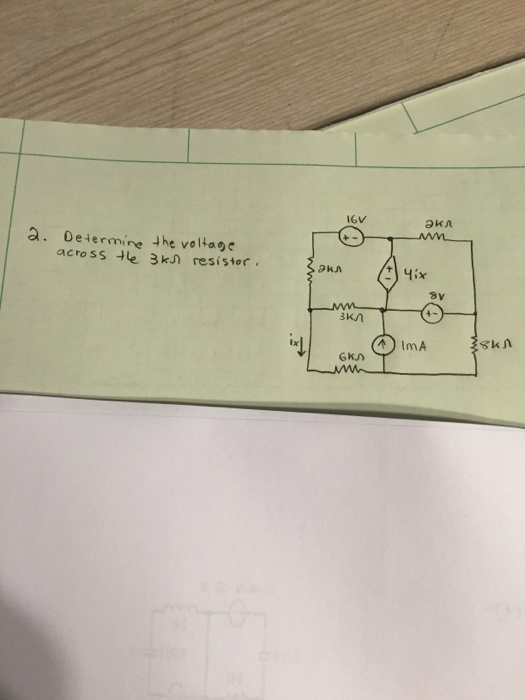 2. Determine the voltage
across the 3kΩ resistor.
16V
2kΩ
+ -
2kΩ
+
-
4ix
8V
+ -
3kΩ
ix
1mA
8kΩ
6kΩ